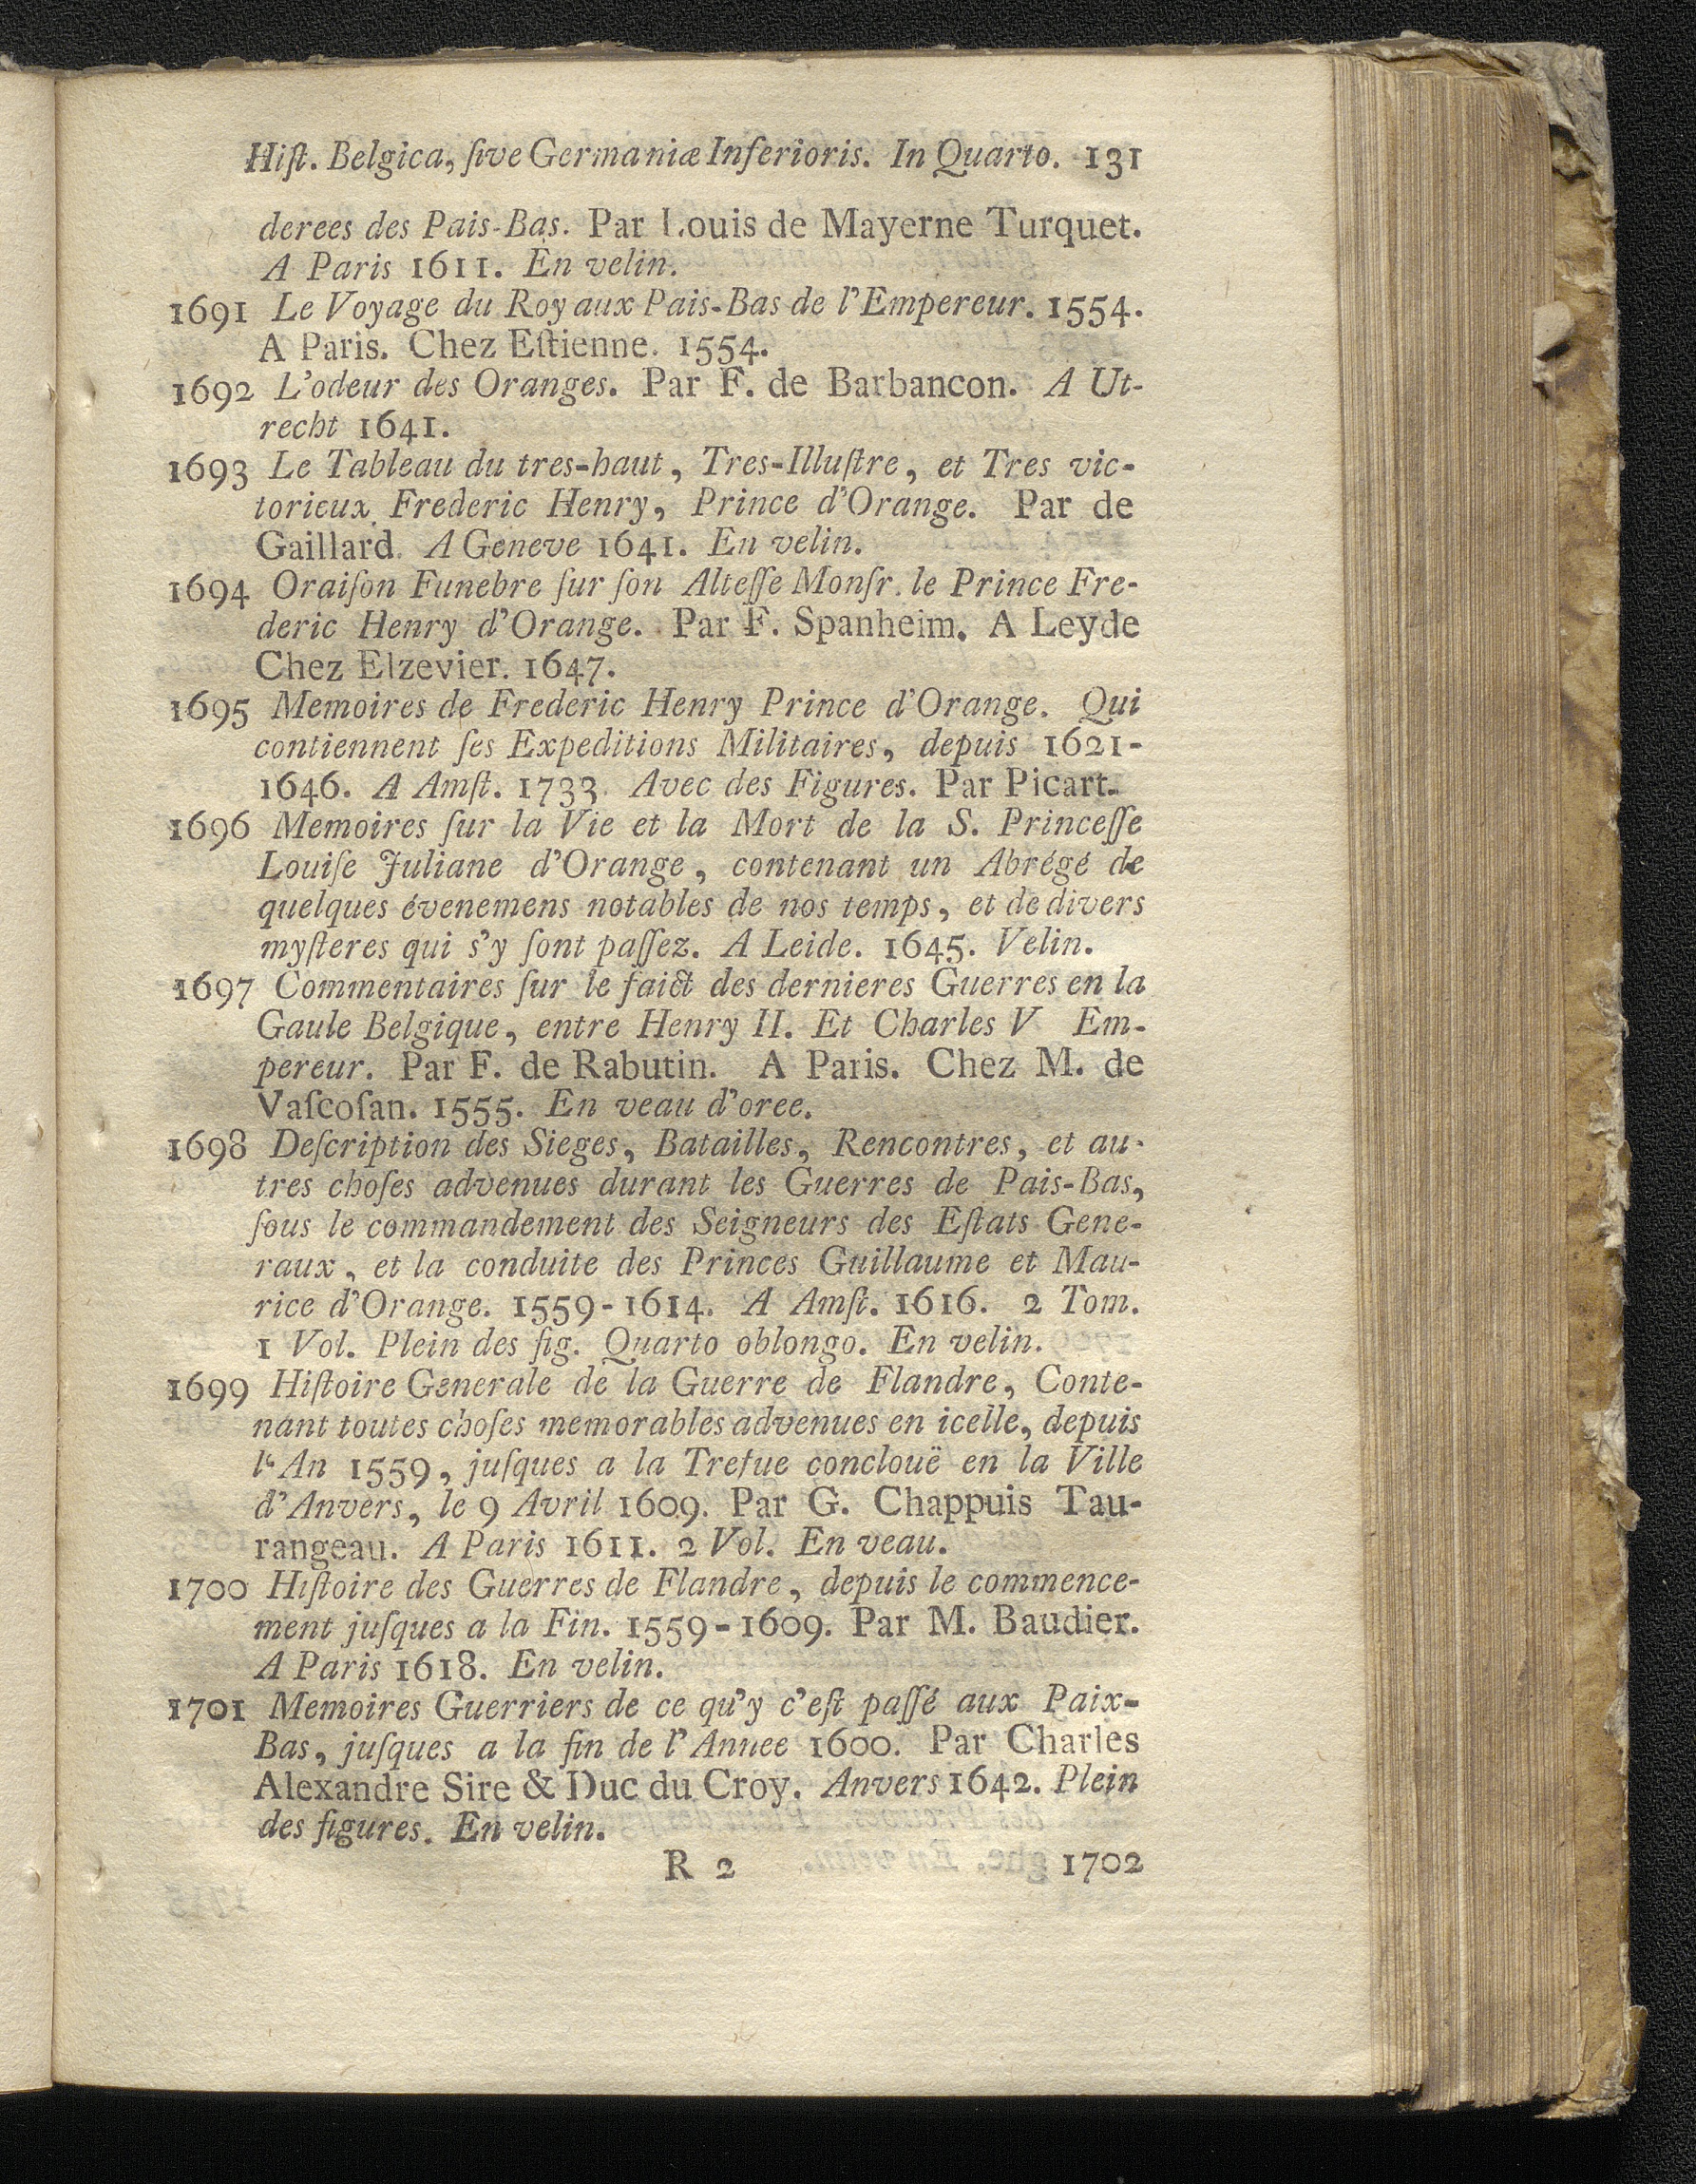 Hiſt. Belgica, ſive Germaniæ Inferioris. In Quarto. 131
derees des Pais-Bas. Par Louis de Mayerne Turquet.
A Paris 1611. En velin.
1691 Le Voyage du Roy aux Pais-Bas de l'Empereur. 1554.
A Paris. Chez Eſtienne. 1554.
1692 L'odeur des Oranges. Par F. de Barbancon. A Ut-
recht 1641.
1693 Le Tableau du tres-haut, Tres-Illuſtre, et Tres vic-
torieux Frederic Henry, Prince d'Orange. Par de
Gaillard. A Geneve 1641. En velin.
1694 Oraiſon Funebre ſur ſon Alteſſe Monſr. le Prince Fre-
deric Henry d'Orange. Par F. Spanheim. A Leyde
Chez Elzevier. 1647.
1695 Memoires de Frederic Henry Prince d'Orange. Qui
contiennent ſes Expeditions Militaires, depuis 1621-
1646. A Amſt. 1733. Avec des Figures. Par Picart.
1696 Memoires ſur la Vie et la Mort de la S. Princeſſe
Louiſe Juliane d'Orange, contenant un Abrégé de
quelques évenemens notables de nos temps, et de divers
myſteres qui s'y ſont paſſez. A Leide. 1645. Velin.
1697 Commentaires ſur le faict des dernieres Guerres en la
Gaule Belgique, entre Henry II. Et Charles V Em-
pereur. Par F. de Rabutin. A Paris. Chez M. de
Vaſcoſan. 1555. En veau d'oree.
1698 Deſcription des Sieges, Batailles, Rencontres, et au-
tres choſes advenues durant les Guerres de Pais-Bas,
ſous le commandement des Seigneurs des Eſtats Gene-
raux, et la conduite des Princes Guillaume et Mau-
rice d'Orange. 1559-1614. A Amſt. 1616. 2 Tom.
1 Vol. Plein des fig. Quarto oblongo. En velin.
1699 Hiſtoire Generale de la Guerre de Flandre, Conte-
nant toutes choſes memorables advenues en icelle, depuis
l'An 1559, juſques a la Trefue conclouë en la Ville
d'Anvers, le 9 Avril 1609. Par G. Chappuis Tau-
rangeau. A Paris 1611. 2 Vol. En veau.
1700 Hiſtoire des Guerres de Flandre, depuis le commence-
ment juſques a la Fin. 1559-1609. Par M. Baudier.
A Paris 1618. En velin.
1701 Memoires Guerriers de ce qu'y c'eſt paſſé aux Paix-
Bas, juſques a la fin de l'Annee 1600. Par Charles
Alexandre Sire & Duc du Croy. Anvers 1642. Plein
des figures. En velin.
R 2 1702